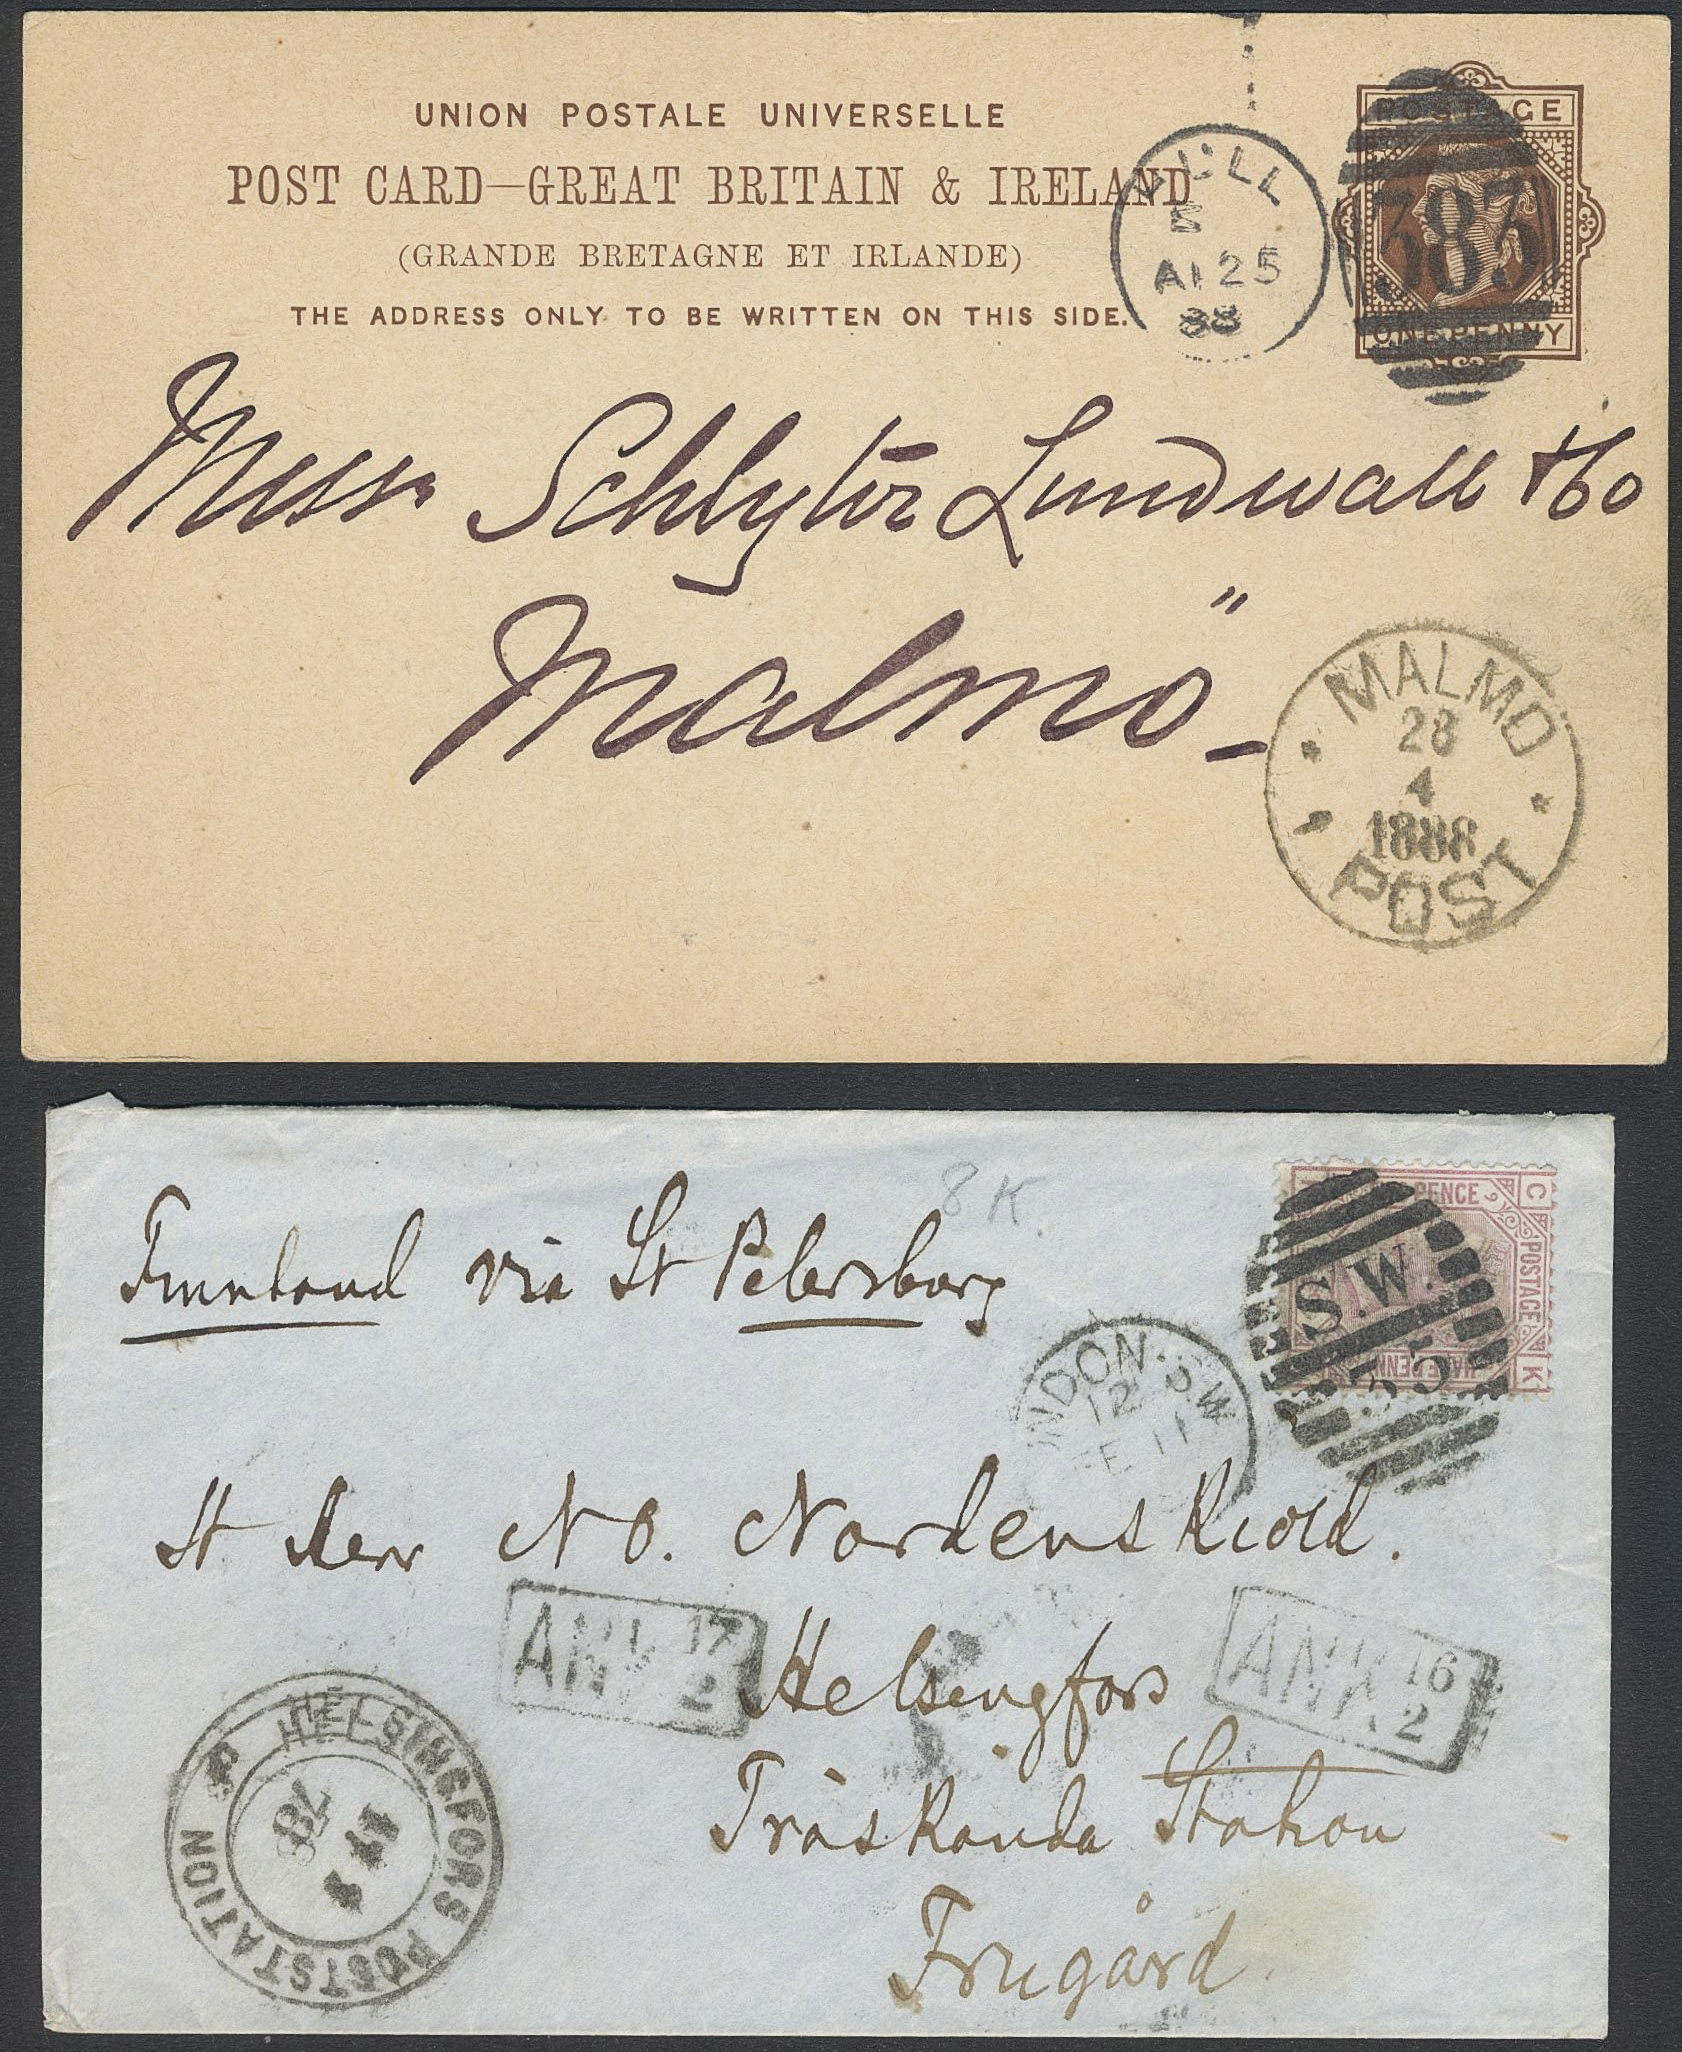 UNION POSTALE UNIVERSELLE
POST CARD—GREAT BRITAIN & IRELAND
(GRANDE BRETAGNE ET IRLANDE)
THE ADDRESS ONLY TO BE WRITTEN ON THIS SIDE.
HULL
AP 25
88
POSTAGE
383
ONE PENNY
Messrs Schlyter Lundwall & Co
Malmö
MALMÖ
28
4
1888
1 POST
8 K.
Finnland via St Petersburg
PENCE
C
POSTAGE
HALFPENNY
K
S.W.
35
LONDON. S.W
12
FE 11
St Herr N O. Nordenskiold.
Helsingfors
Träskända Station
Frugård
ANK 17
2
ANK 16
2
HELSINGFORS POSTSTATION
78